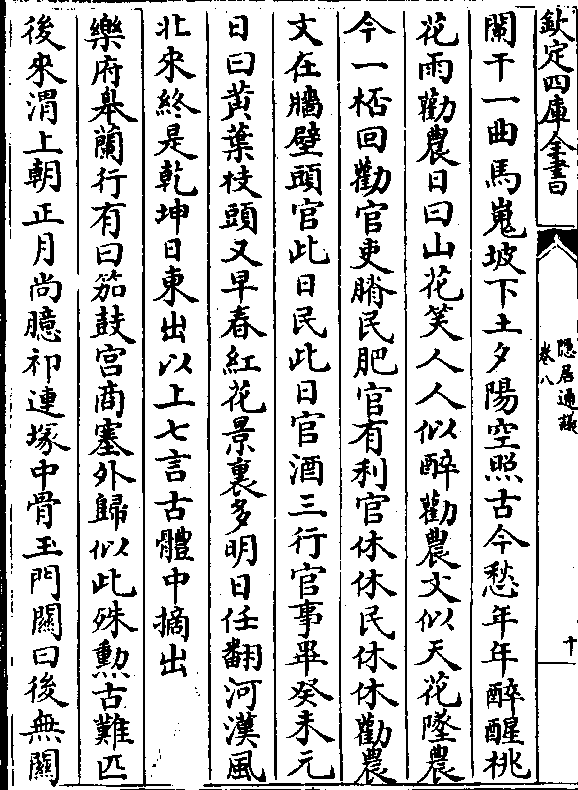 欽定四庫全書
隱居通議
卷八
十
闌干一曲馬嵬坡下土夕陽空照古今愁年年醉醒桃
花雨勸農日曰山花笑人人似醉勸農文似天花墜農
今一桮回勸官吏瘠民肥官有利官休休民休休勸農
文在牆壁頭官此日民此日官酒三行官事畢癸未元
日曰黃葉枝頭又早春紅花景裏多明日任翻河漢風
北來終是乾坤日東出以上七言古體中摘出
樂府皋蘭行有曰笳鼓宫商塞外歸似此殊勲古難匹
後來渭上朝正月尚臆祁連塚中骨玉門關曰後無關